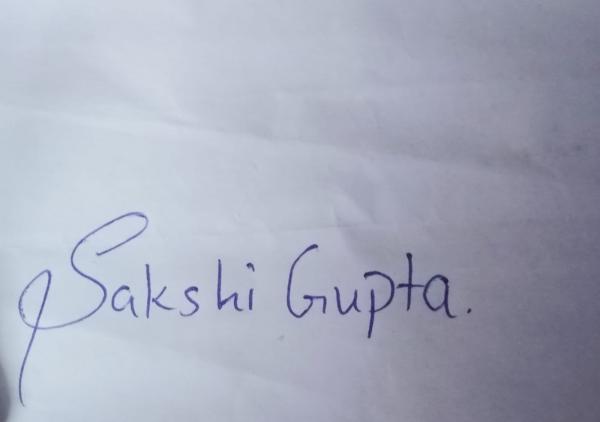 Sakshi Gupta.